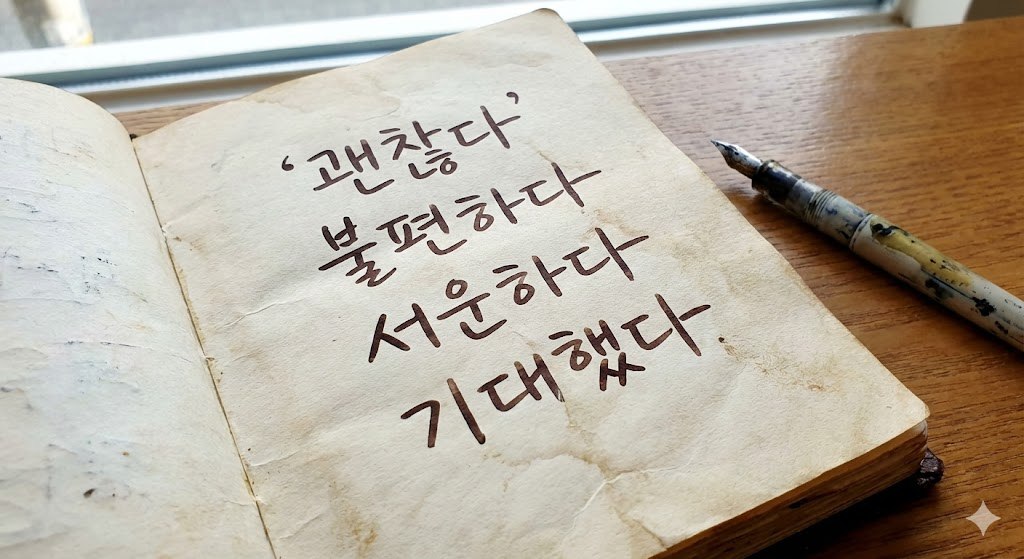 ‘괜찮다’
불편하다
서운하다
기대했다